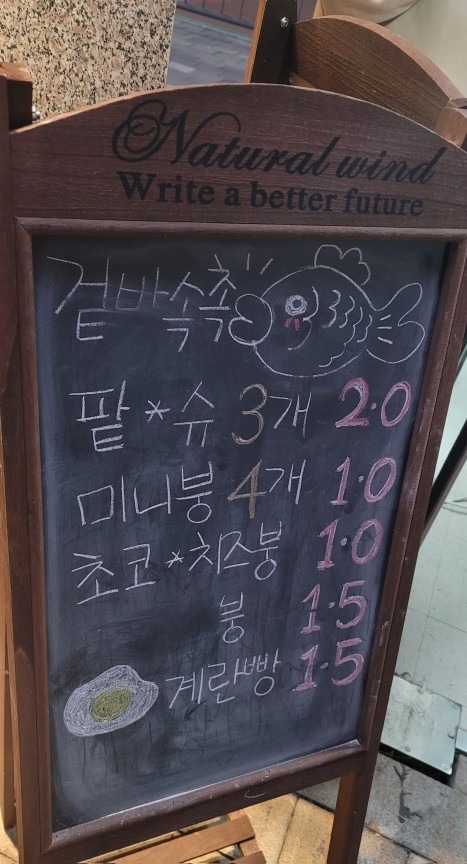 Natural wind
Write a better future
겉바속촉
팥*슈 3개 2.0
미니붕 4개 1.0
초코*치즈붕 1.0
붕 1.5
계란빵 1.5